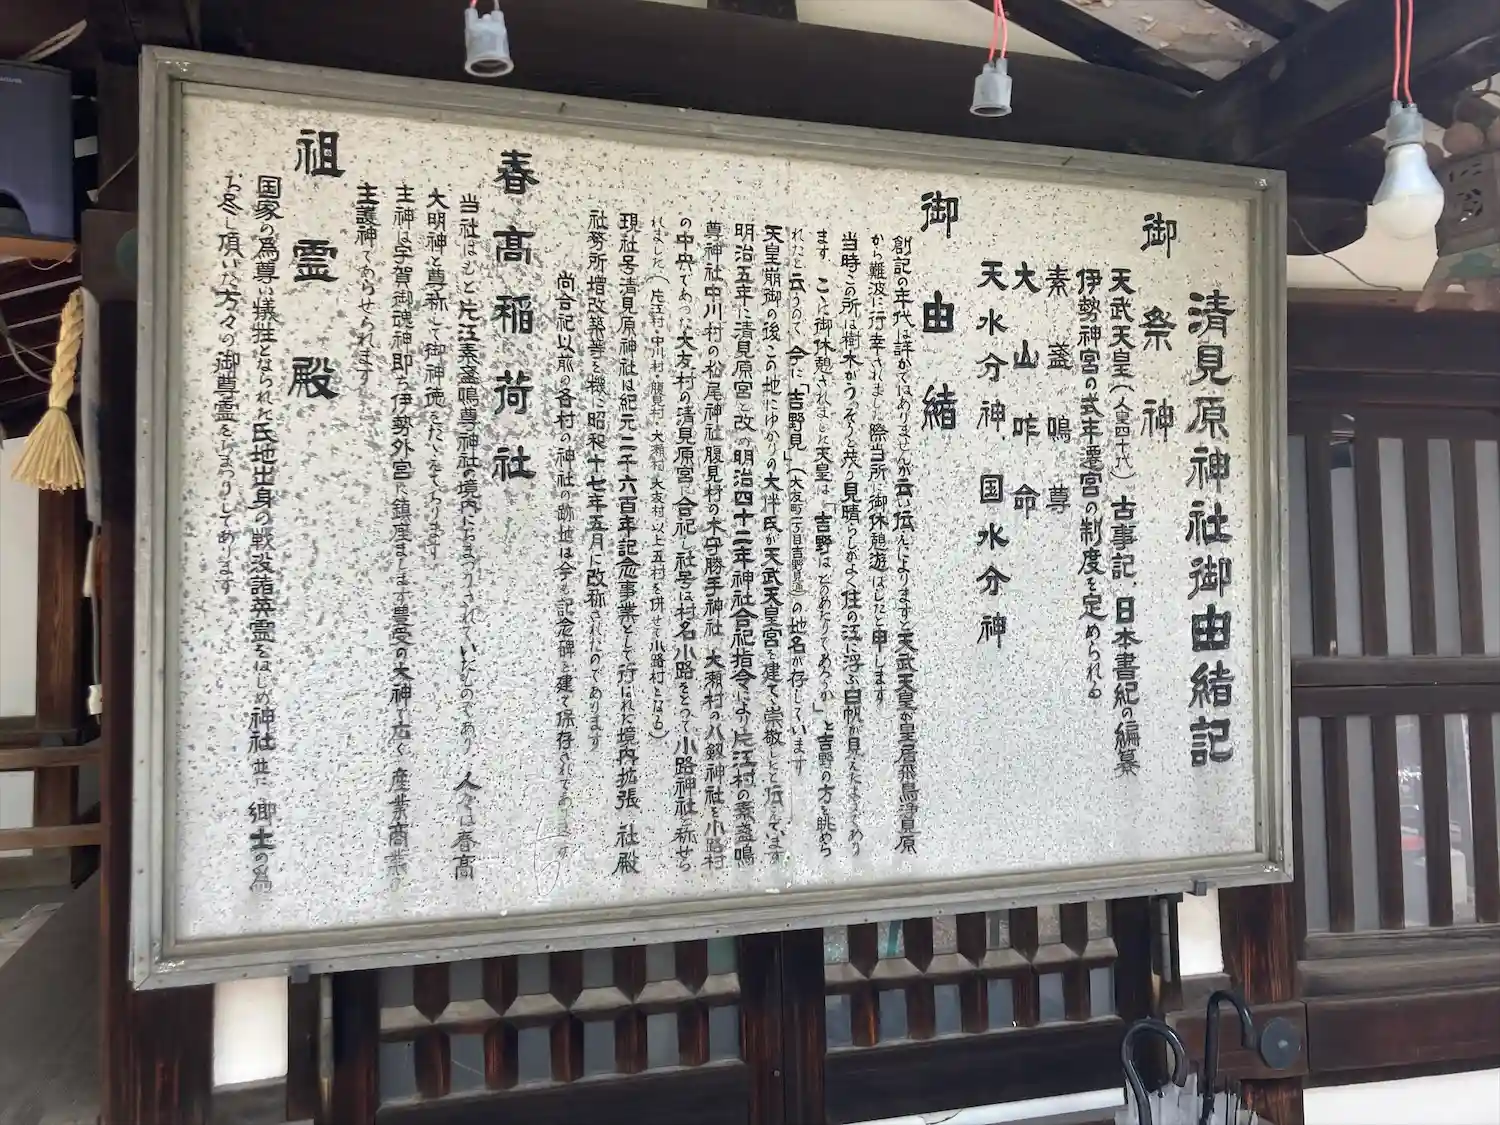 清見原神社御由緒記
御祭神
天武天皇(人皇四十代) 古事記、日本書紀の編纂
伊勢神宮の式年遷宮の制度を定められる
素盞嗚尊
大山咋命
天水分神、国水分神
御由緒
創記の年代は詳かではありませんが云い伝えによりますと天武天皇が皇居飛鳥浄見原
から難波に行幸されました際当所に御休憩遊ばしたと申します
当時この所は樹木がうっそうと茂り見晴らしがよく住の江に浮ぶ白帆が見えたようであり
ます ここに御休憩されました天皇は「吉野はどのあたりであろうか」と吉野の方を眺めら
れたと云うので 今に「吉野見」(大友町一丁目吉野見通)の地名が存しています
天皇崩御の後この地にゆかりの大伴氏が天武天皇宮を建て崇敬したと伝えています
明治五年に清見原宮と改め明治四十二年神社合祀指令により片江村の素盞嗚
尊神社中川村の松尾神社腹見村の木守勝手神社 大瀬村の八劔神社を小路村
の中央であった大友村の清見原宮に合祀し社号は村名小路をとって小路神社と称せら
れました(片江村 中川村 腹見村 大瀬村 大友村以上五村を併せて小路村となる)
現社号清見原神社は紀元二千六百年記念事業として行はれた境内拡張 社殿
社務所増改築等を機に昭和十七年五月に改称されたのであります
尚合祀以前の各村の神社の跡地は今も記念碑を建て保存されてあります
春高稲荷社
当社はもと片江素盞嗚尊神社の境内におまつりされていたものであり 人々は春高
大明神と尊称して御神徳をたたえております
主神は宇賀御魂神即ち伊勢外宮に鎮座まします豊受の大神で広く 産業商業の
主護神であらせられます
祖霊殿
国家の為尊い犠牲となられた氏地出身の戦没諸英霊をはじめ神社並に 郷土の為
お尽し頂いた方々の御尊霊をおまつりしてあります